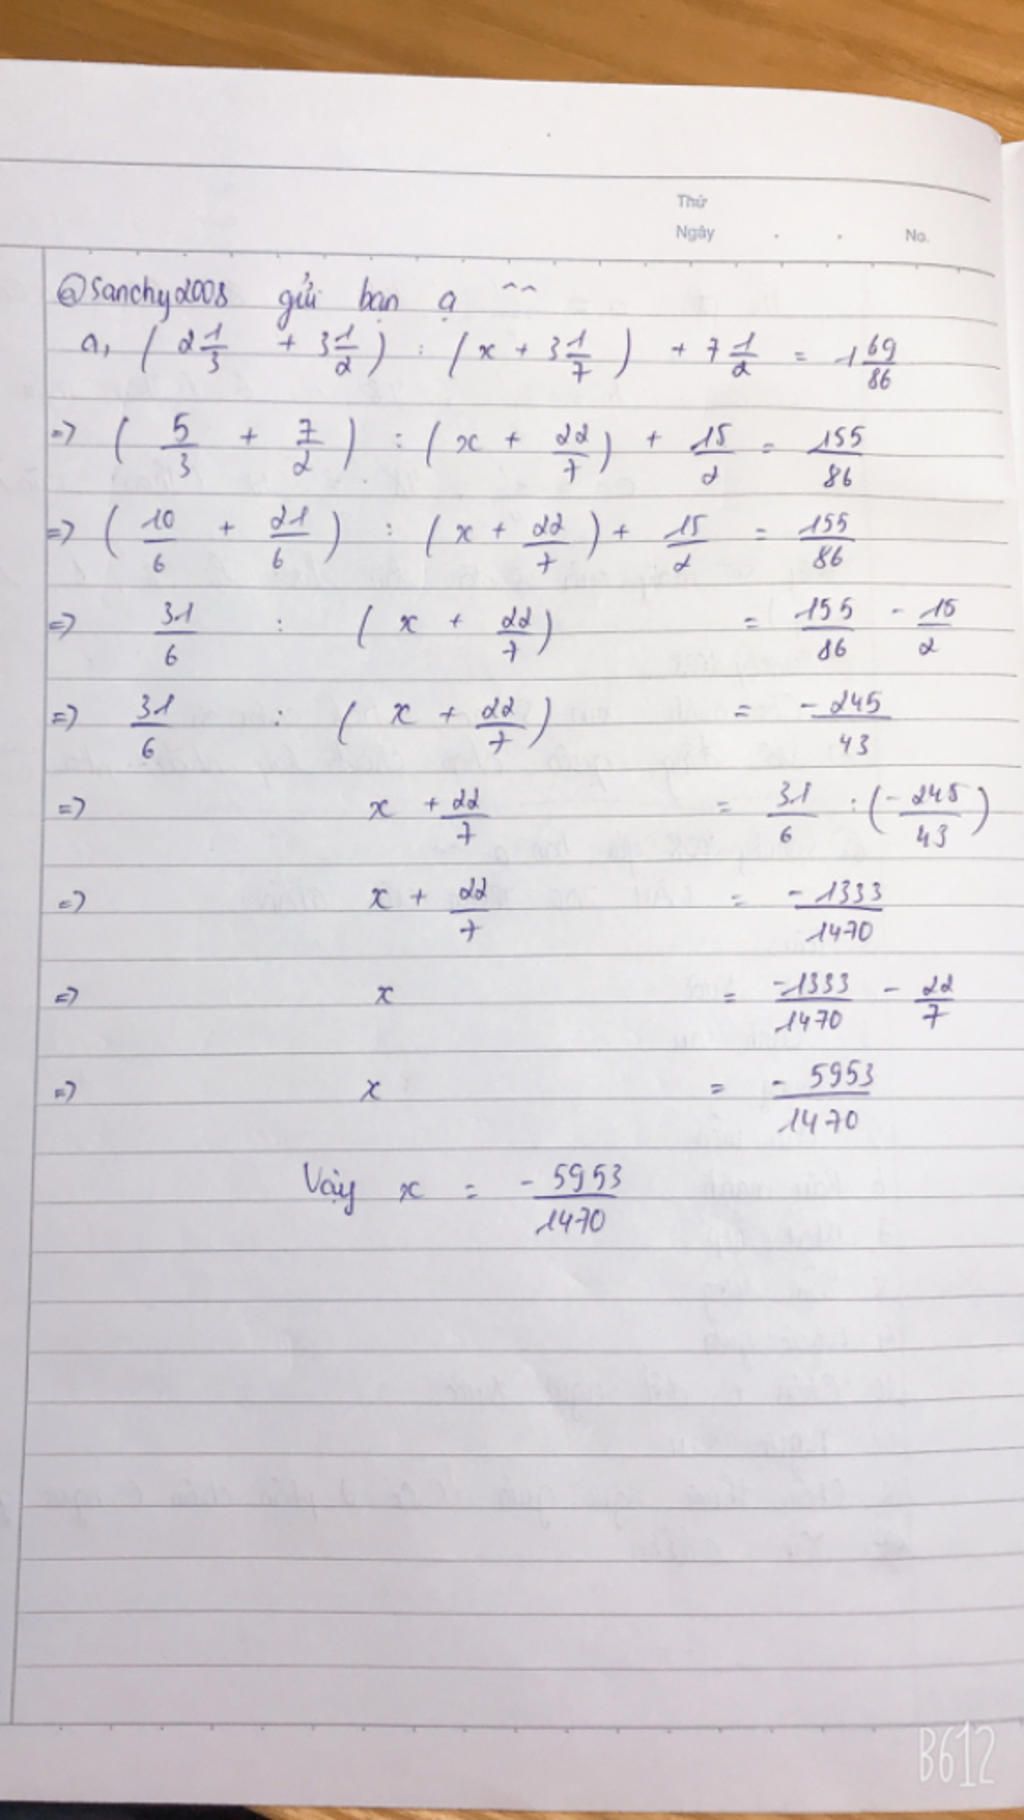 Thứ
Ngày . . No.
@Sanchy2008 gửi bạn ạ ^^
a, ( 2 1/3 + 3 1/2 ) : ( x + 3 1/7 ) + 7 1/2 = 1 69/86
=> ( 5/3 + 7/2 ) : ( x + 22/7 ) + 15/2 = 155/86
=> ( 10/6 + 21/6 ) : ( x + 22/7 ) + 15/2 = 155/86
=> 31/6 : ( x + 22/7 ) = 155/86 - 15/2
=> 31/6 : ( x + 22/7 ) = -245/43
=> x + 22/7 = 31/6 : ( -245/43 )
=> x + 22/7 = -1333/1470
=> x = -1333/1470 - 22/7
=> x = -5953/1470
Vậy x = -5953/1470
B612